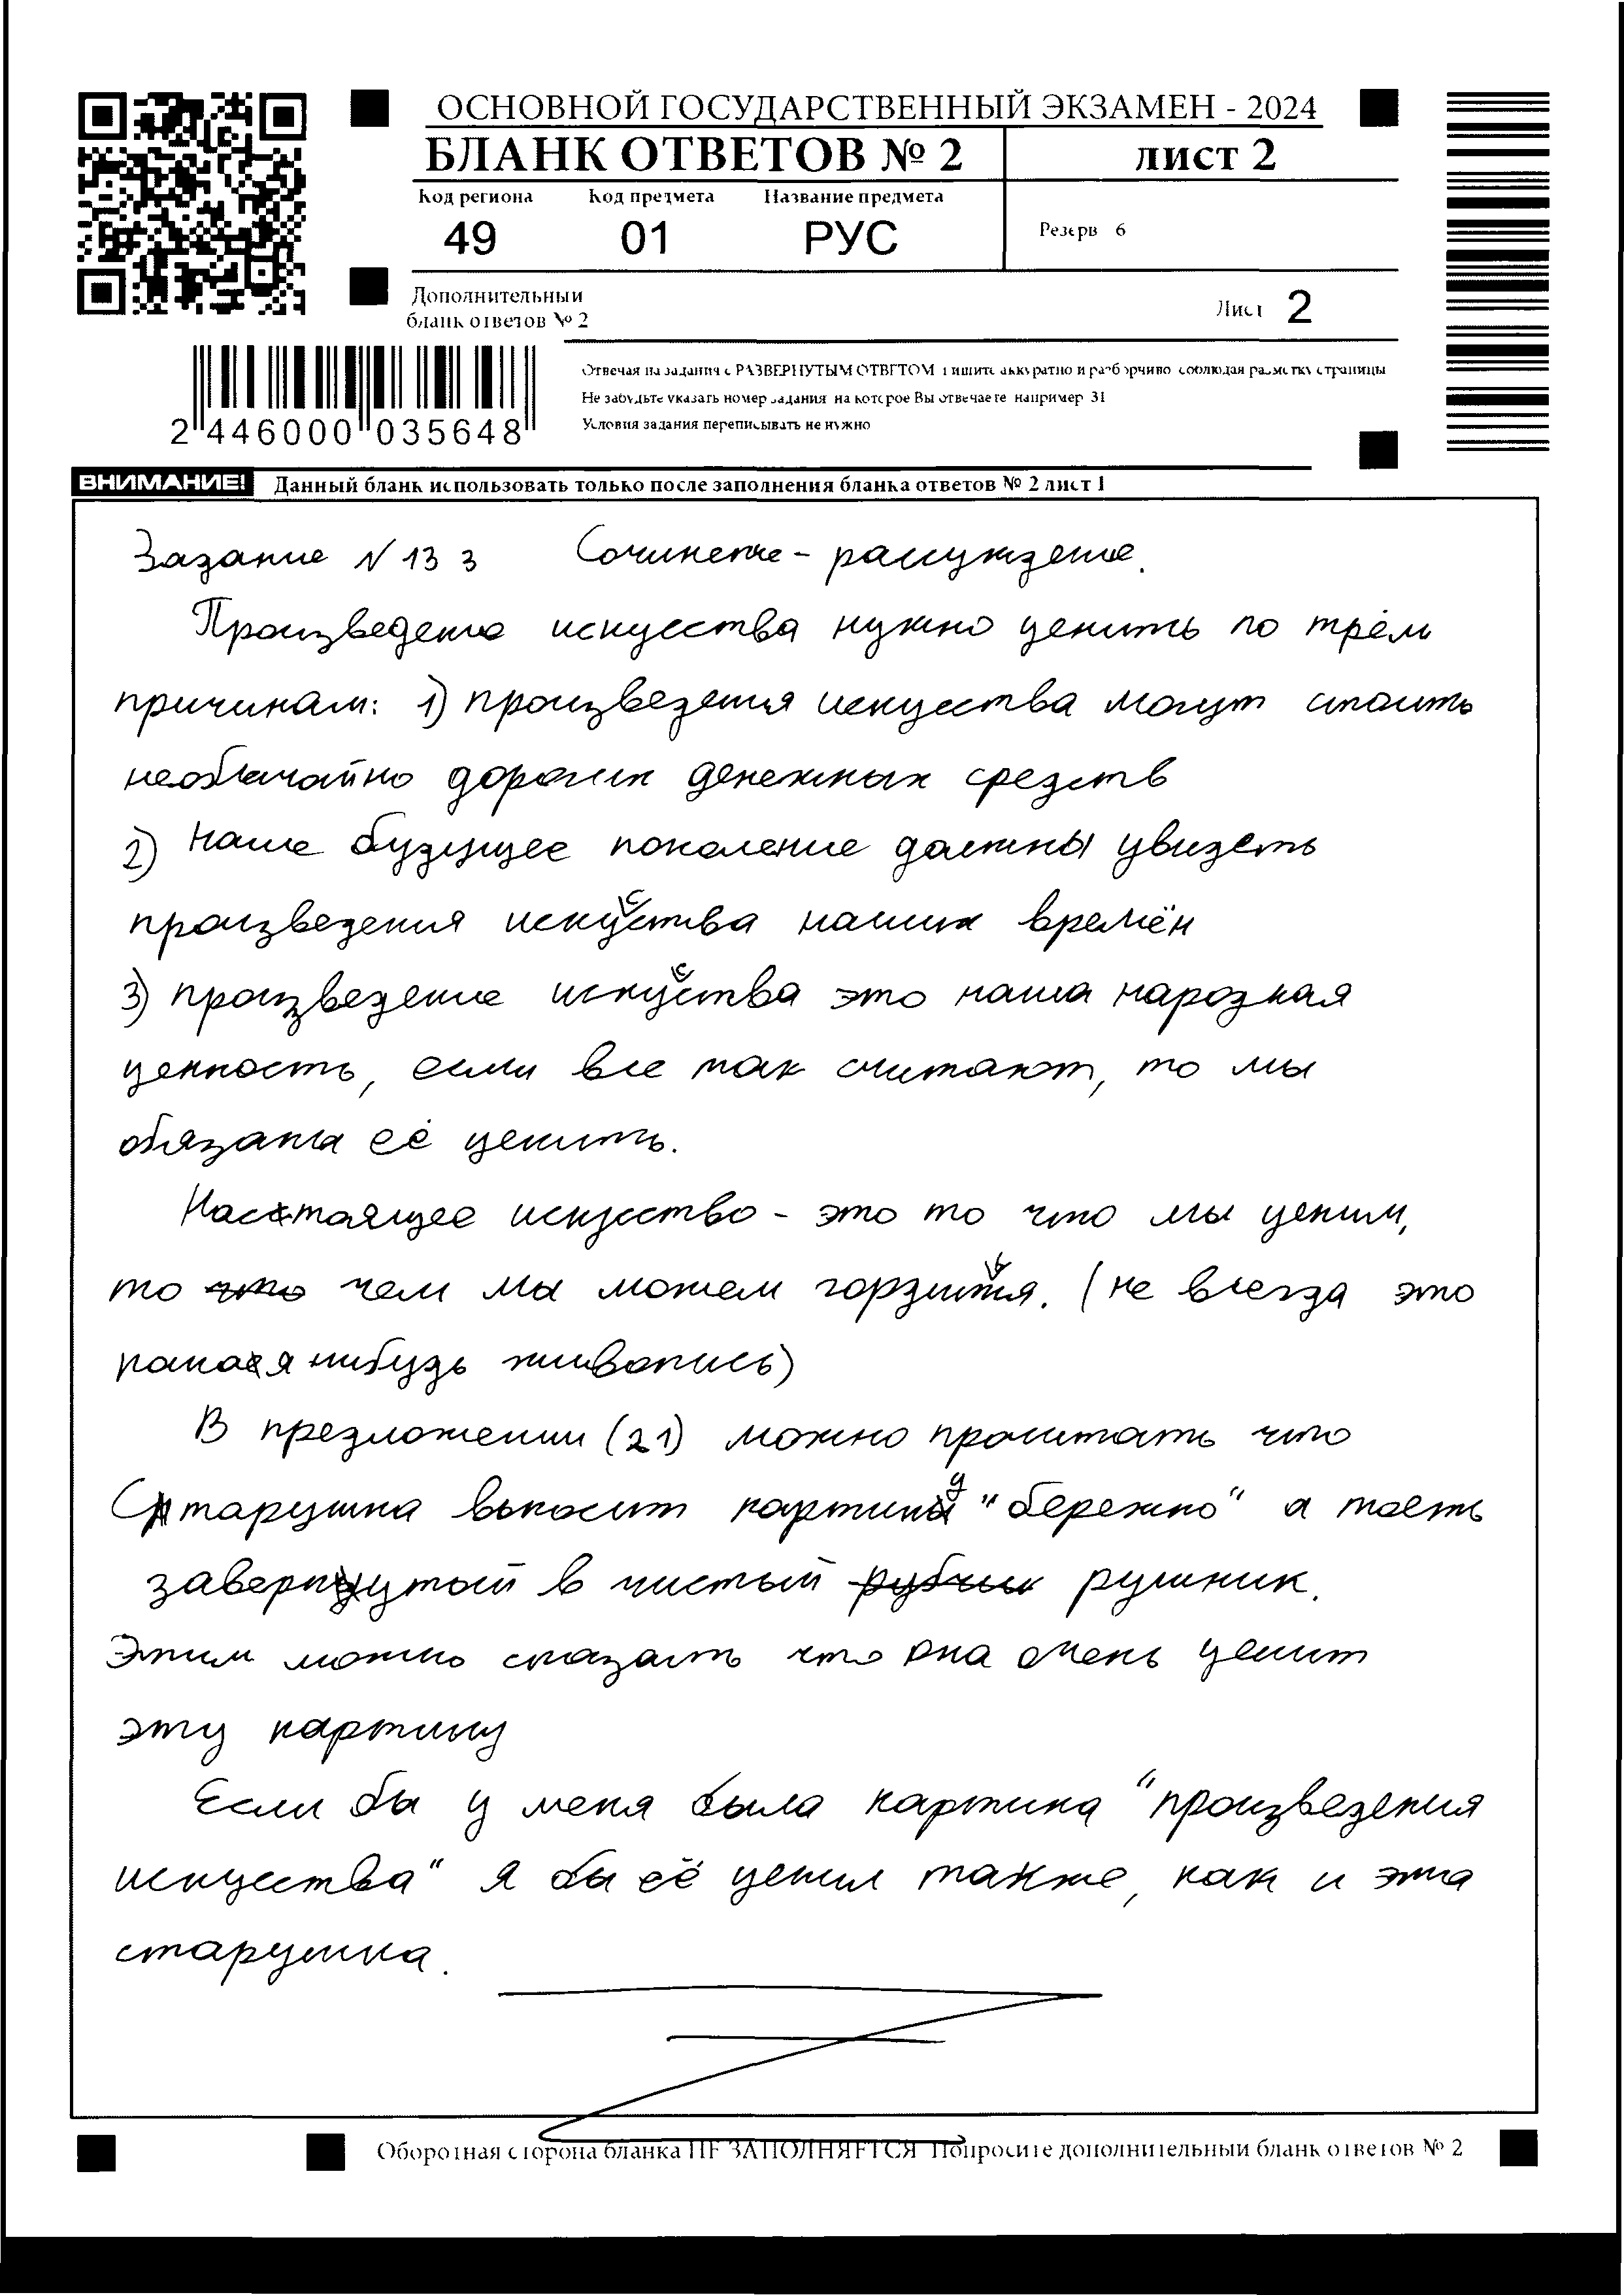 ОСНОВНОЙ ГОСУДАРСТВЕННЫЙ ЭКЗАМЕН - 2024
БЛАНК ОТВЕТОВ № 2 ЛИСТ 2
Код региона Код предмета Название предмета
49 01 РУС
Резерв 6
Дополнительный
бланк ответов № 2
Лист 2
Отвечая на задания с РАЗВЕРНУТЫМ ОТВЕТОМ пишите аккуратно и разборчиво соблюдая разметку страницы
Не забудьте указать номер задания на которое Вы отвечаете например 31
Условия задания переписывать не нужно
2 446000 035648
ВНИМАНИЕ! Данный бланк использовать только после заполнения бланка ответов № 2 лист 1
Задание N 13 3 Сочинение - рассуждение.
Произведение искусства нужно ценить по трём
причинам: 1) произведения искусства могут стоить
необычайно дорогих денежных средств
2) Наше будущее поколение должны увидеть
произведения искусства наших времён
3) произведение искусства это наша народная
ценность, если все так считают, то мы
обязаны её ценить.
Настоящее искусство - это то что мы ценим,
то что чем мы можем гордиться. (не всегда это
какая нибудь живопись)
В предложении (21) можно прочитать что
Старушка выносит картину "бережно" а тоесть
завернутой в чистый рушник.
Этим можно сказать что она очень ценит
эту картину
Если бы у меня была картина "произведения
искусства" я бы её ценил также, как и эта
старушка.
Оборотная сторона бланка НЕ ЗАПОЛНЯЕТСЯ Попросите дополнительный бланк ответов № 2